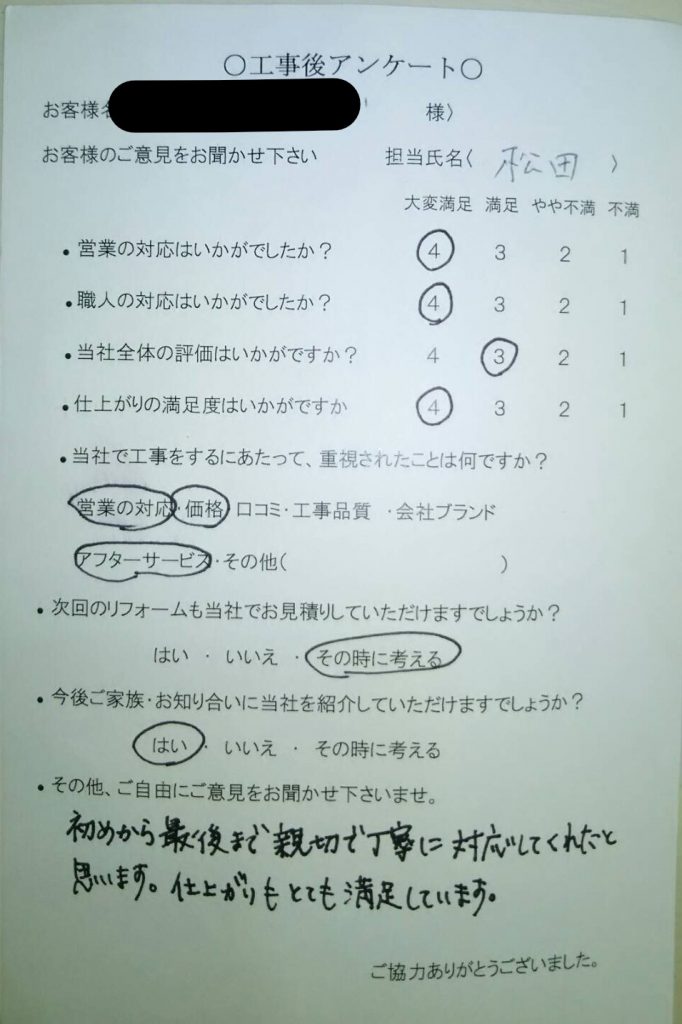 ○工事後アンケート○
お客様名 様〉
お客様のご意見をお聞かせ下さい 担当氏名〈 松田 〉
大変満足 満足 やや不満 不満
・営業の対応はいかがでしたか？ 4 3 2 1
・職人の対応はいかがでしたか？ 4 3 2 1
・当社全体の評価はいかがですか？ 4 3 2 1
・仕上がりの満足度はいかがですか 4 3 2 1
・当社で工事をするにあたって、重視されたことは何ですか？
営業の対応・価格・口コミ・工事品質 ・会社ブランド
アフターサービス・その他( )
・次回のリフォームも当社でお見積りしていただけますでしょうか？
はい ・ いいえ ・ その時に考える
・今後ご家族・お知り合いに当社を紹介していただけますでしょうか？
はい ・ いいえ ・ その時に考える
・その他、ご自由にご意見をお聞かせ下さいませ。
初めから最後まで親切で丁寧に対応してくれたと
思います。仕上がりもとても満足しています。
ご協力ありがとうございました。